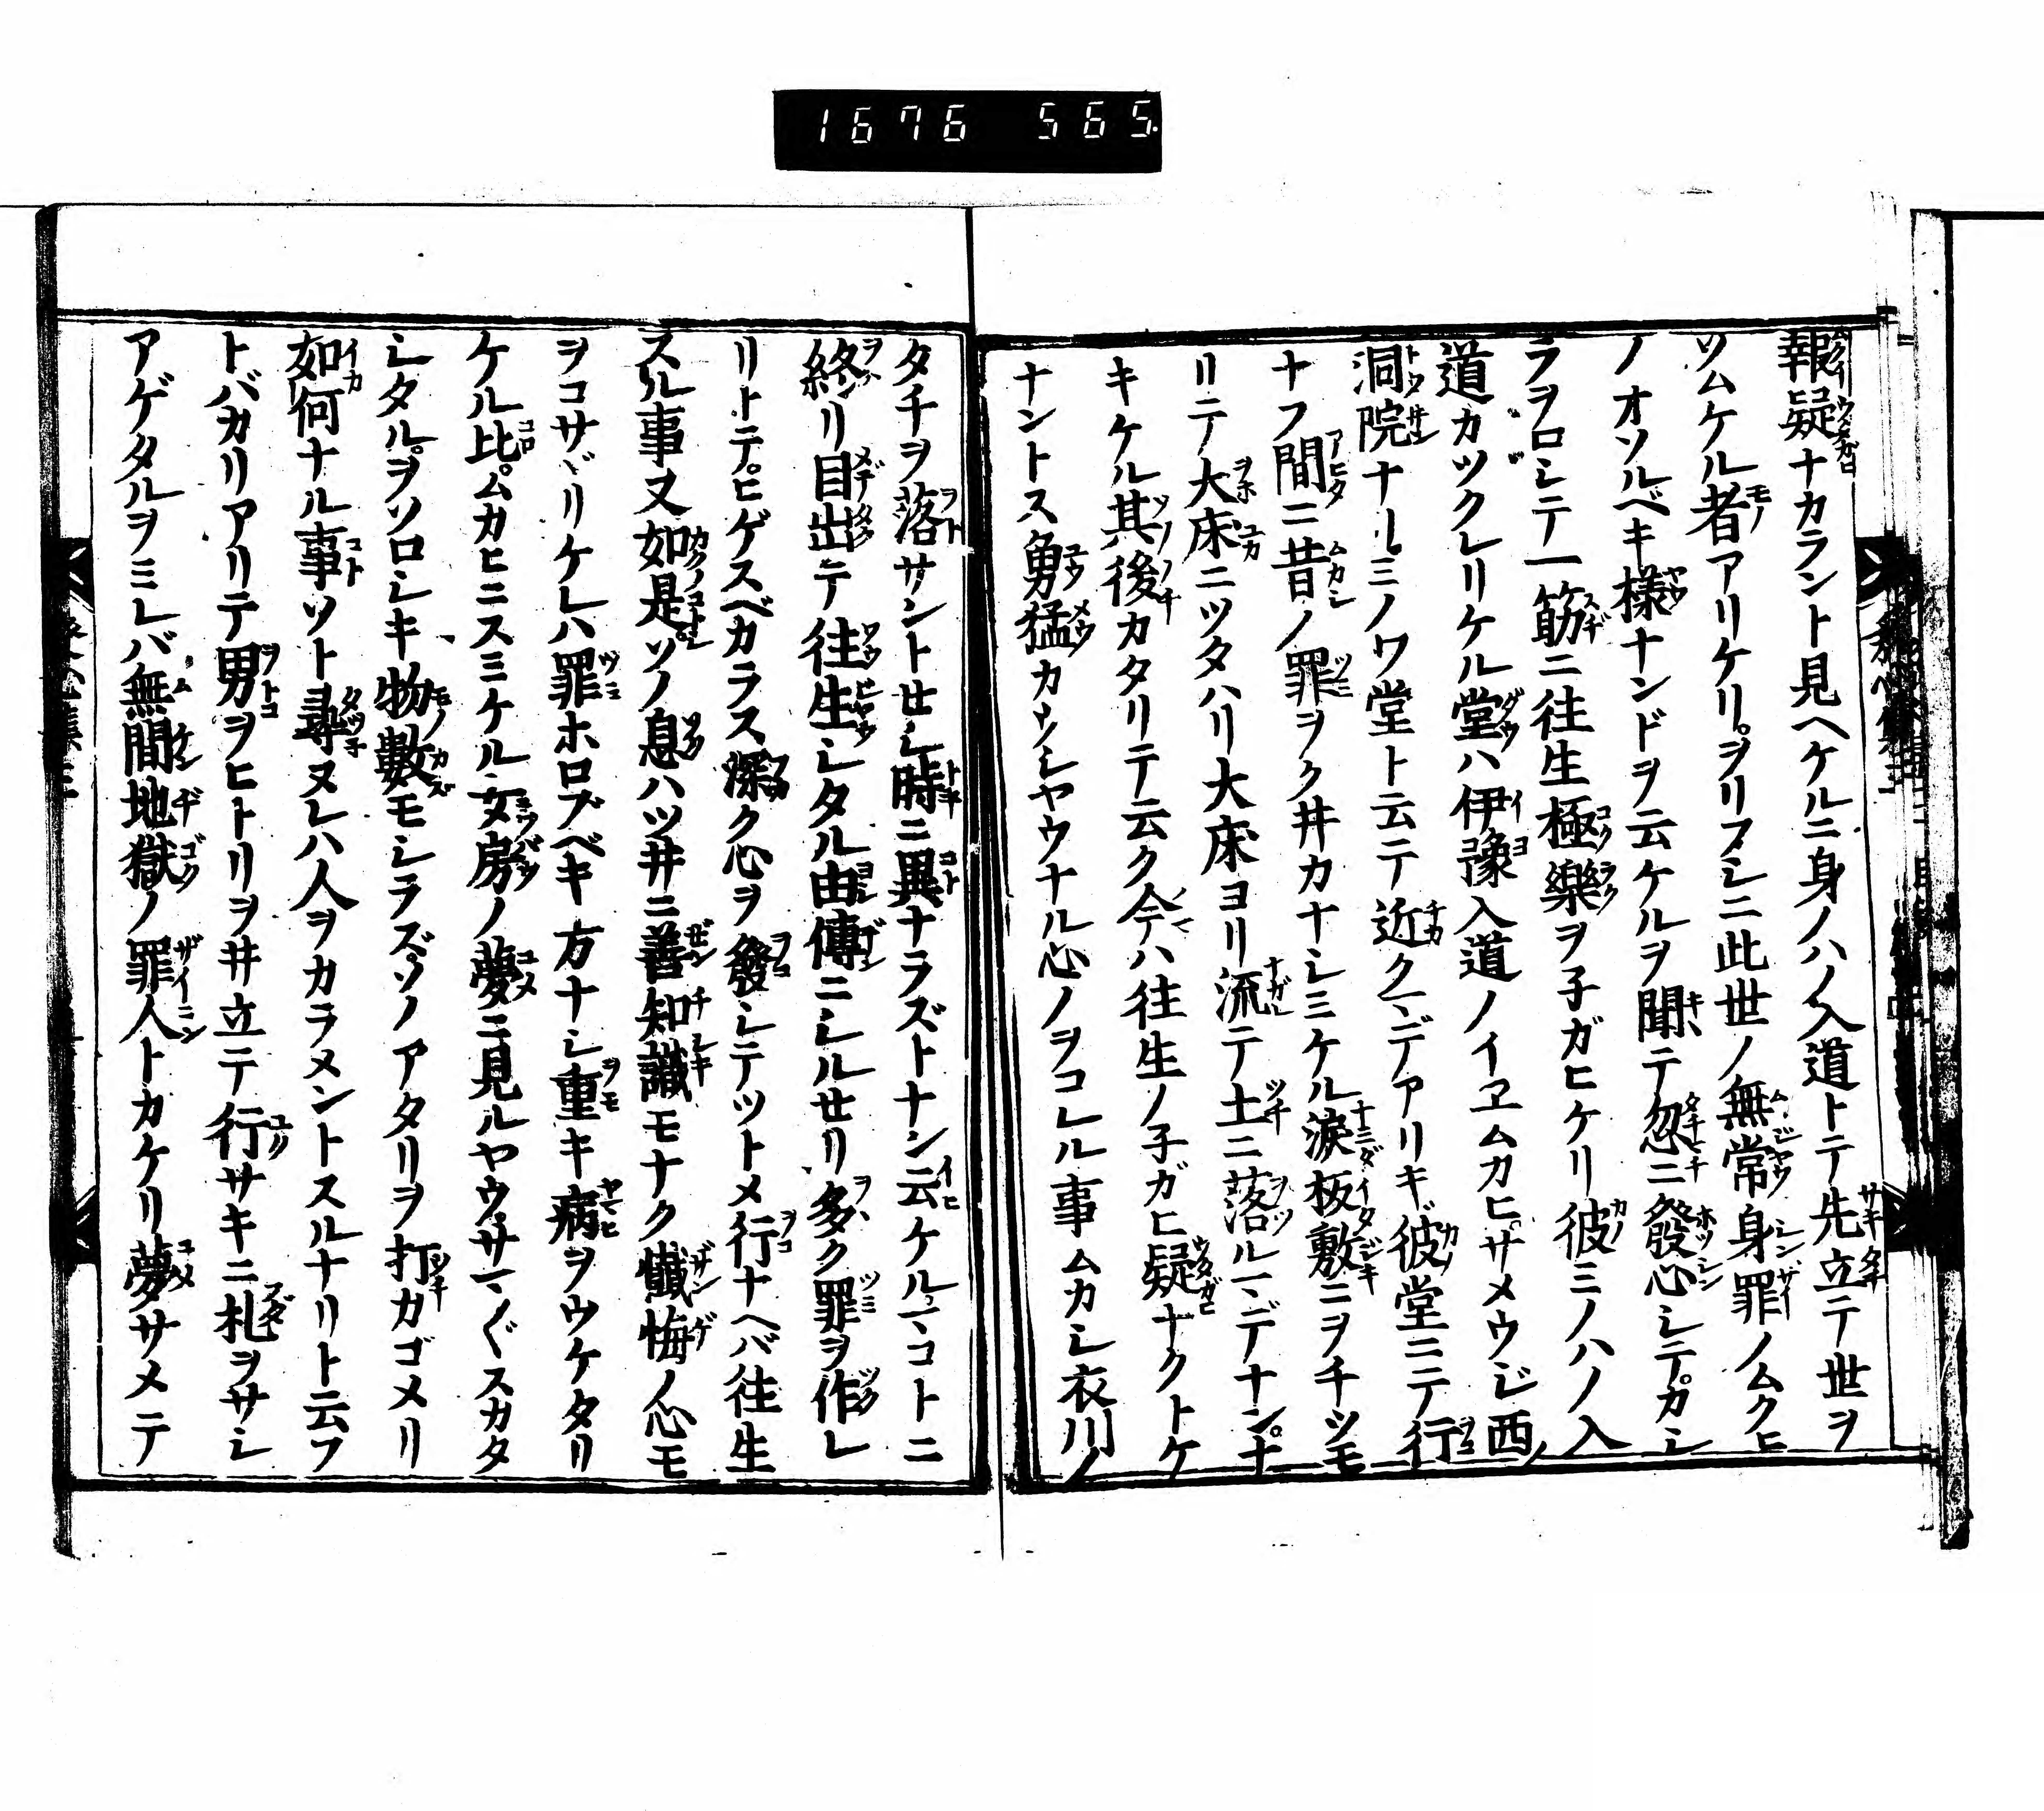 1676 565.
報疑ナカラント見ヘケルニ身ノハノ入道トテ先立テ世ヲ
ソムケル者アリケリ。ヲリフシニ此世ノ無常身罪ノムクヒ
ノオソルベキ様ナンドヲ云ケルヲ聞テ忽ニ發心シテカシ
ラヲロシテ一筋ニ往生極樂ヲ子ガヒケリ彼ミノハノ入
道カツクレリケル堂ハ伊豫入道ノイヱムカヒサメウジ西ノ
洞院ナリミノワ堂ト云テ近クマデアリキ彼堂ニテ行
ナフ間ニ昔ノ罪ヲクヰカナシミケル淚板敷ニヲチツモ
リテ大床ニツタハリ大床ヨリ流テ土ニ落ルマデナンナ
キケル其後カタリテ云ク今ハ往生ノ子ガヒ疑ナクトケ
ナントス勇猛カウシヤウナル心ノヲコレル事ムカシ衣川ノ
タチヲ落サントせシ時ニ異ナラズトナン云ケルマコトニ
終リ目出テ往生シタル由傳ニシルせリ多ク罪ヲ作レ
リトテヒゲスベカラス深ク心ヲ發シテツトメ行ナヘバ往生
スル事又如是ソノ息ハツ井ニ善知識モナク懺悔ノ心モ
ヲコサヾリケレハ罪ホロブベキ方ナシ重キ病ヲウケタリ
ケル比ムカヒニスミケル女房ノ夢ニ見ルヤウサマ〲スカタ
シタルヲソロシキ物數モシラズソノアタリヲ打カゴメリ
如何ナル事ソト尋ヌレハ人ヲカラメントスルナリト云フ
トバカリアリテ男ヲヒトリヲ井立テ行サキニ札ヲサシ
アゲタルヲミレバ無間地獄ノ罪人トカケリ夢サメテ